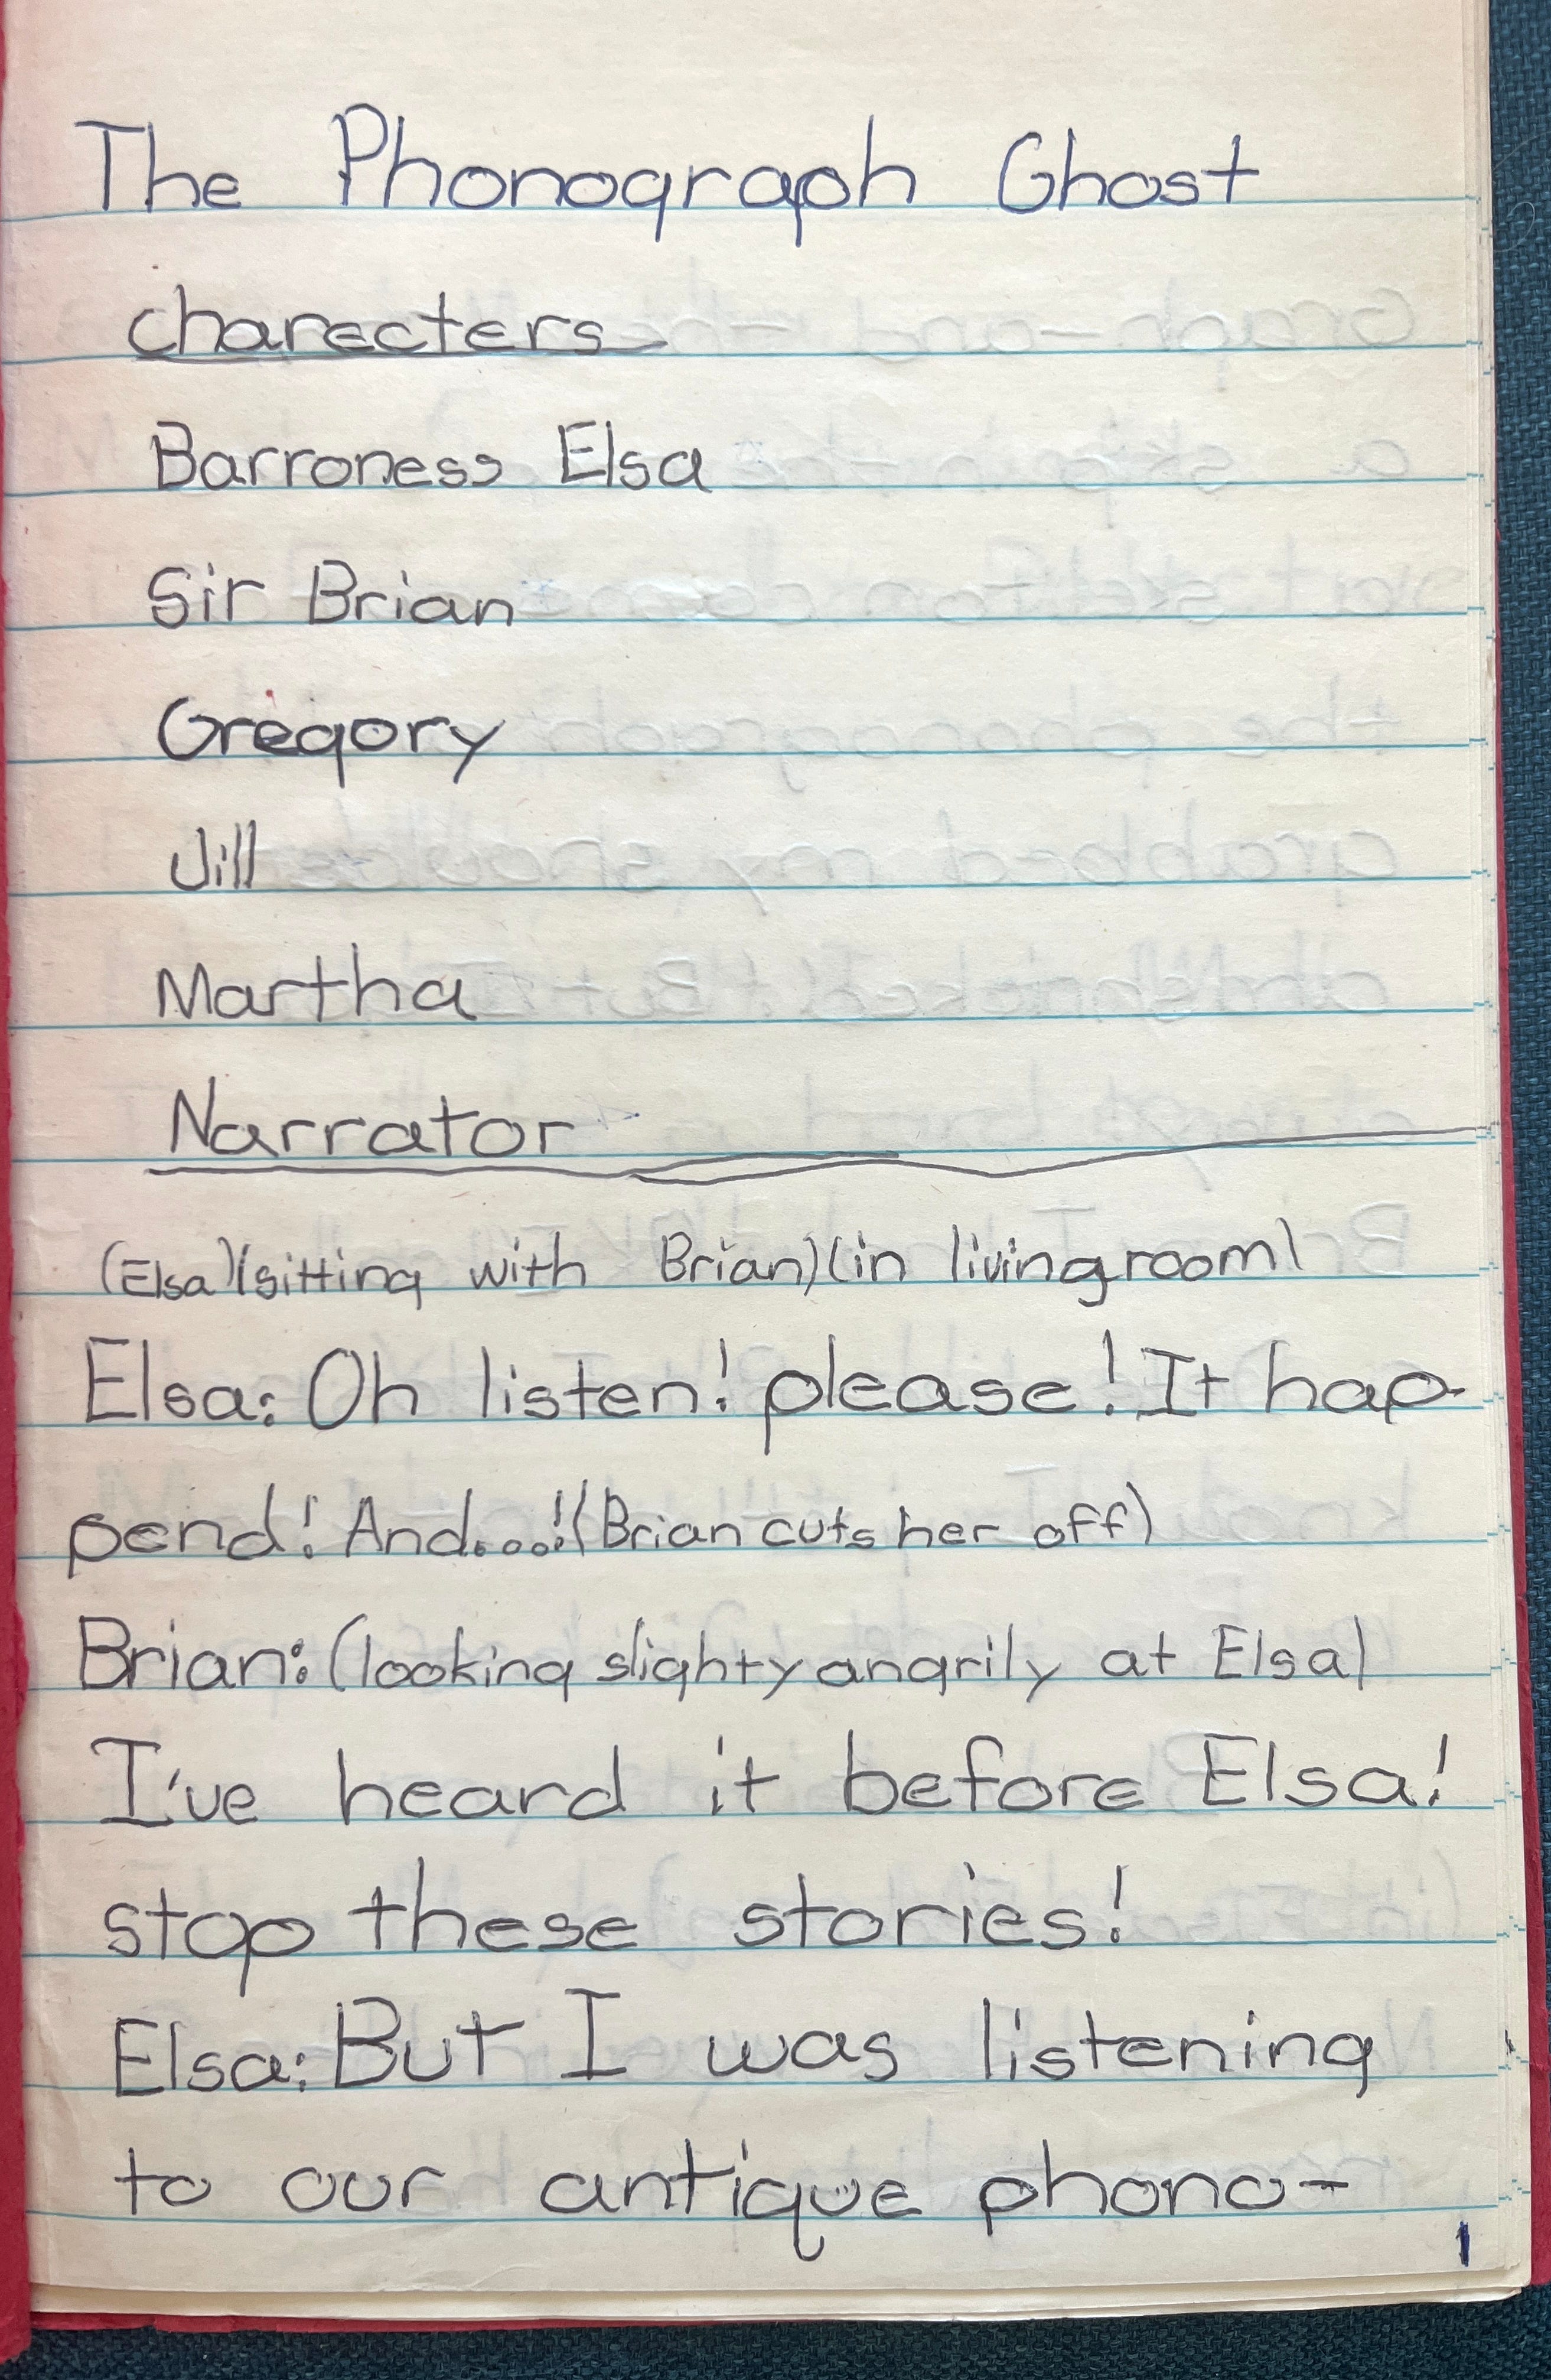 The Phonograph Ghost
charecters
Barroness Elsa
Sir Brian
Gregory
Jill
Martha
Narrator
(Elsa)(sitting with Brian)(in livingroom)
Elsa: Oh listen! please! It hap-
pend! And....!(Brian cuts her off)
Brian: (looking slighty angrily at Elsa)
I've heard it before Elsa!
stop these stories!
Elsa: But I was listening
to our antique phono-
1